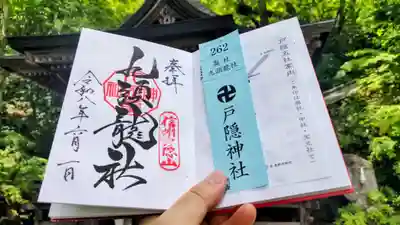 奉拝
九頭龍社
令和八年六月一日
262
奥社
九頭龍社
卍戸隠神社
戸隠五社案内